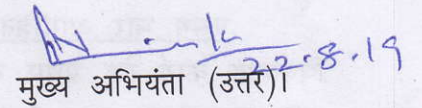 22.8.19
मुख्य अभियंता (उत्तर)।